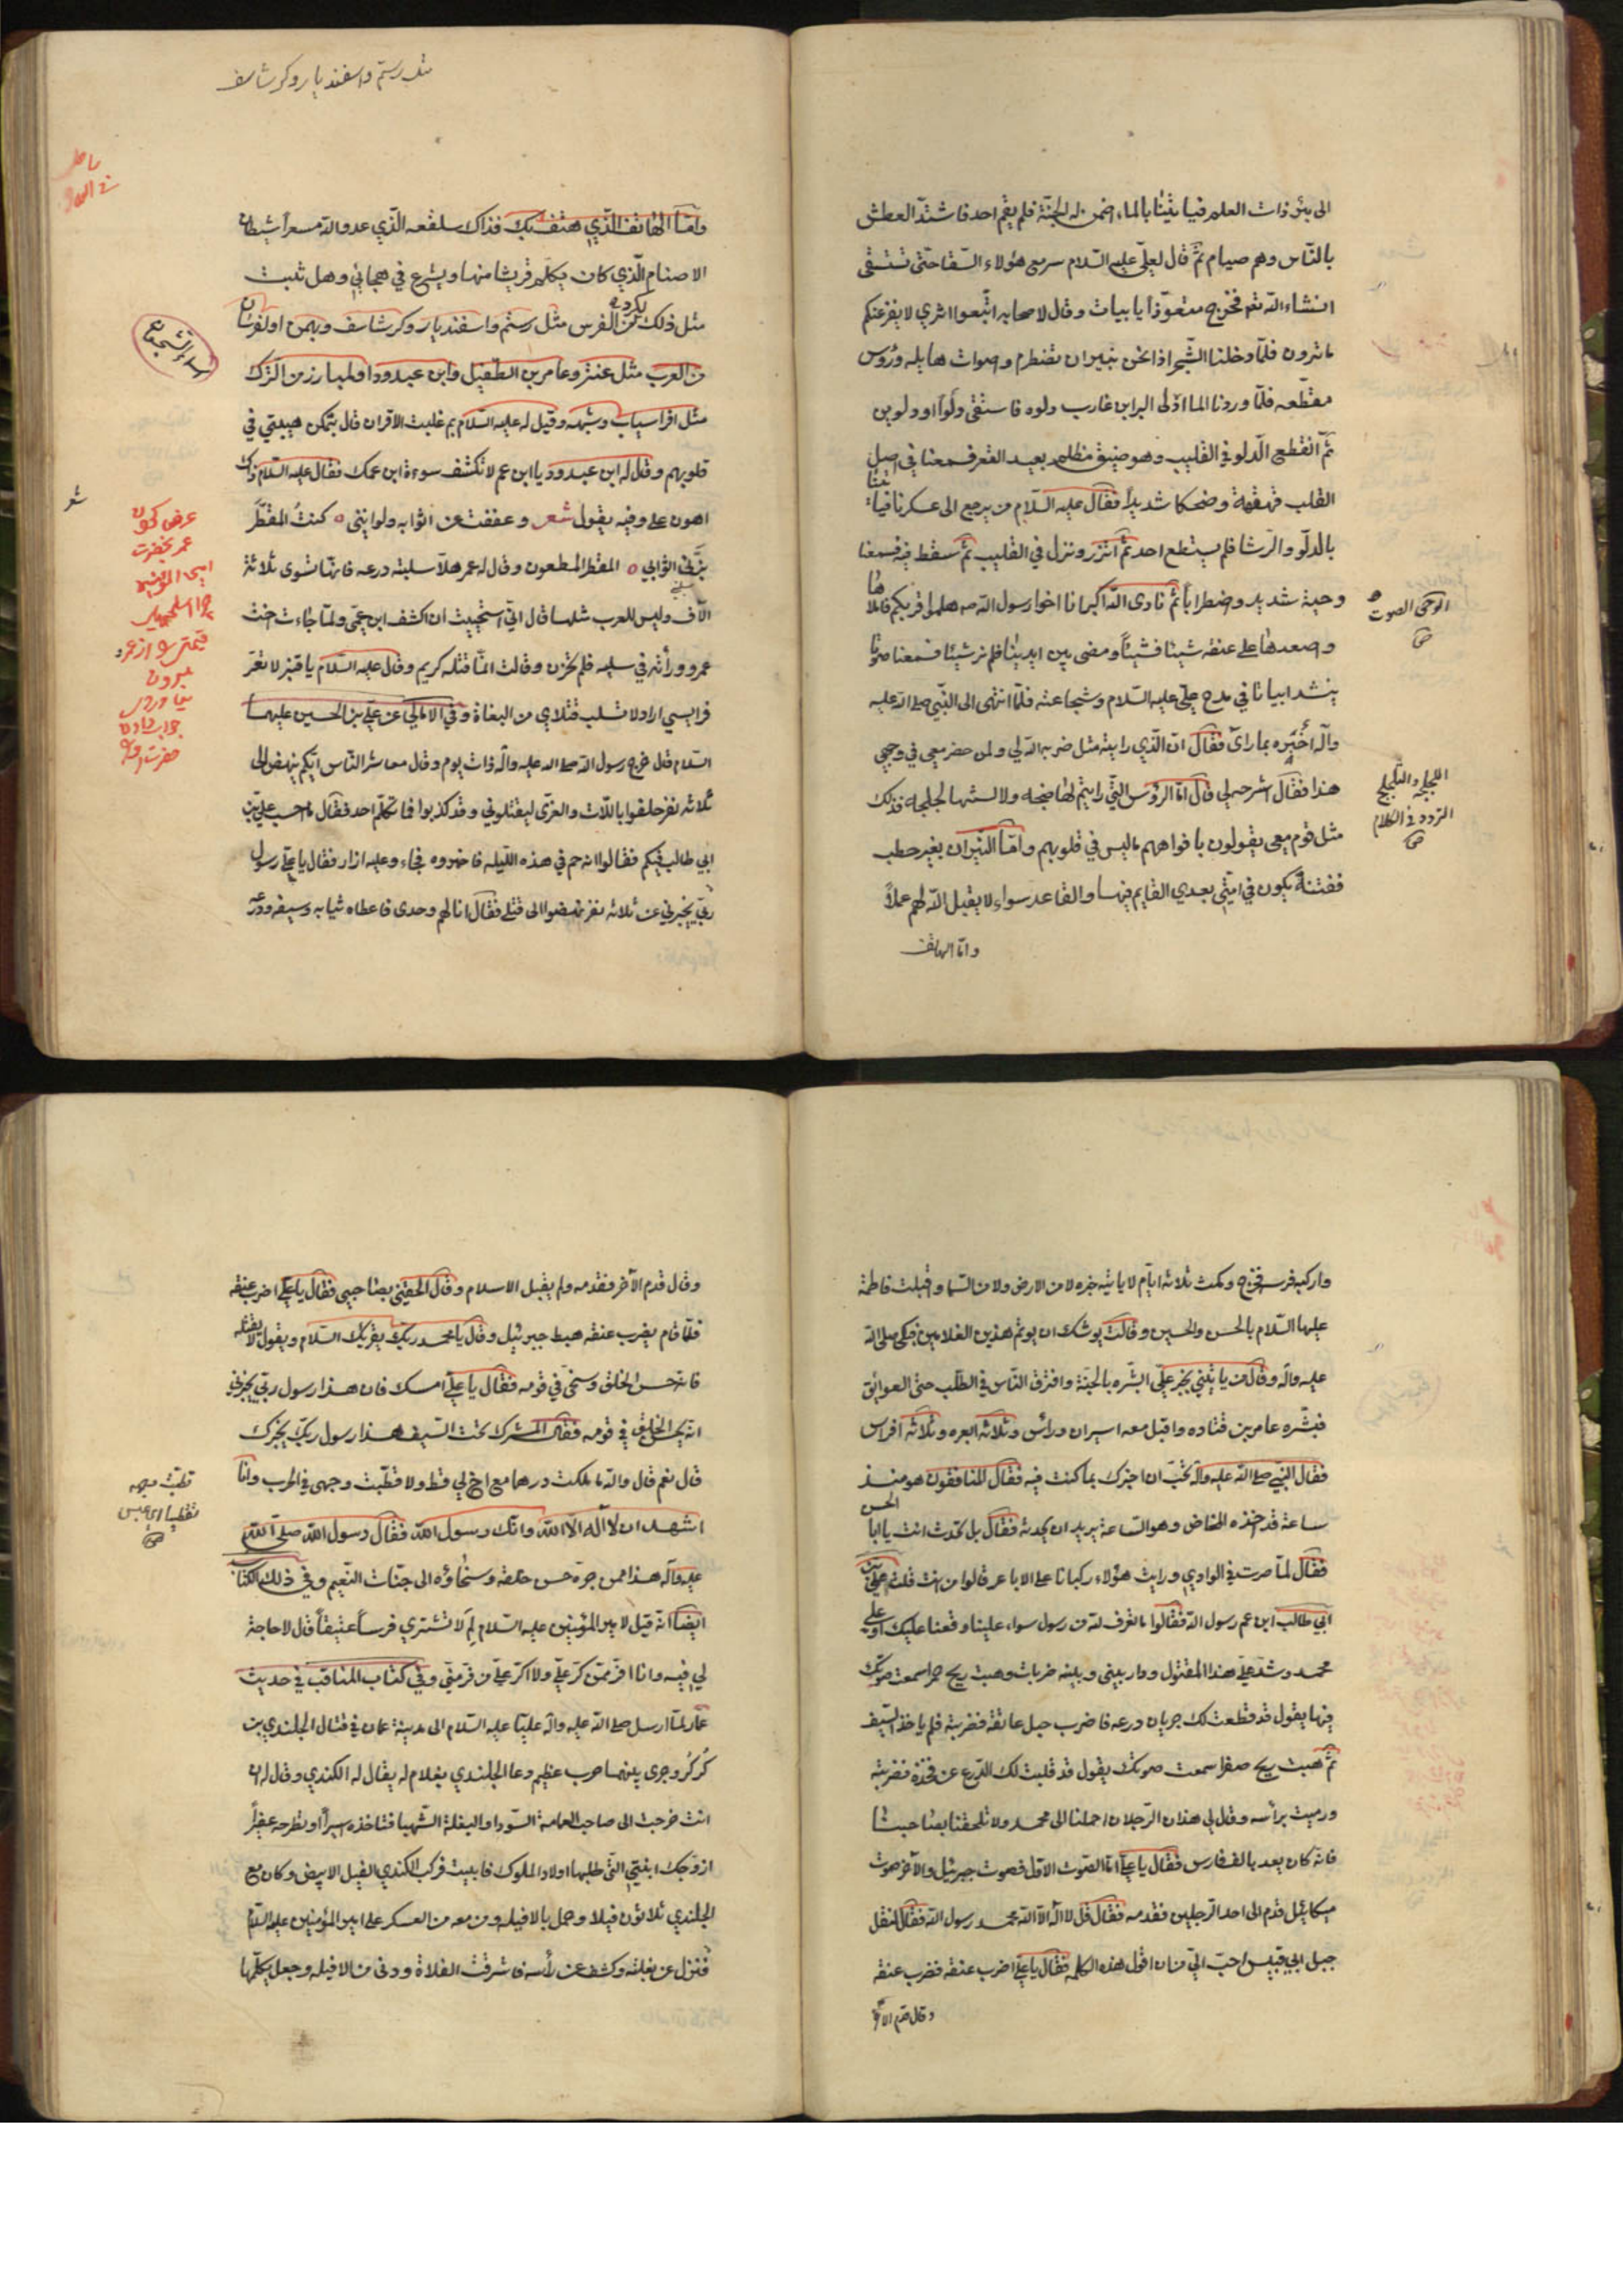 الى بئر ذات العلم فياتينا بالماء اضمن له الجنة فلم يقم احد فاشتد العطش
بالناس وهم صيام ثم قال لعلي عليه السلام سر مع هؤلاء السقا حتى تستقى
انشاء الله نعم فخرج متعوذا بابيات وقال لاصحابه اتبعوا اثري لا يفزعنكم
ما ترون فلما دخلنا الشجر اذا نحن بنيران تضطرم واصوات هايله ورؤس
مقطعه فلما وردنا الماء ادلى البرا بن عازب دلوه فاستقى دلوا او دلوين
ثم انقطع الدلو في القليب وهو ضيق مظلم بعيد القعر فسمعنا في اصل
القلب قهقهة وضحكا شديدا فقال عليه السلام من يرجع الى عسكرنا فياتينا
بالدلو والرشا فلم يستطع احد ثم اتزر ونزل في القليب ثم سقط فيه فسمعنا
وحية شديد واضطرابا ثم نادى الله اكبر انا اخوا رسول الله صه هلموا قربكم فاملاها
واصعدها على عنقه شيئا فشيئا ومضى بين ايدينا فلم نر شيئا فسمعنا صوتا
ينشد ابياتا في مدح علي عليه السلام وشجاعته فلما انتهى الى النبي صلى الله عليه
وآله اخبره بما رأى فقال ان الذي رايته مثل ضربه الله لي ولمن حضر معي في وجهي
هذا فقال اشرحه لي قال اما الرؤس التي رايتم لها ضجه ولالسنتها لجلجه فذلك
مثل قوم معى يقولون بافواههم ما ليس في قلوبهم واما النيران بغير حطب
ففتنة يكون في امتي بعدي القايم فيها والقاعد سواء لا يقبل الله لهم عملا
واما الهاتف
الوحى الصوت
ص
اللجلجه والتلجلج
التردد في الكلام
ص
مثل رستم واسفنديار وكرشاسف
واما الهاتف الذي هتف بك فذاك سلقعه الذي عدو الله مسعر اشيطان
الاصنام الذي كان يكلم قريشا منها ويشرع في هجائي وهل تثبت
مثل ذلك من الفرس مثل رستم واسفنديار وكرشاسف وبهمن او لفرسان
من العرب مثل عنتر وعامر بن الطفيل وابن عبدود او لمبارز من الترك
مثل افراسياب وشبهه وقيل له عليه السلام بم غلبت الاقران قال بتمكن هيبتي في
قلوبهم وقال له ابن عبدود يا ابن عم لا تكشف سوءة ابن عمك فقال عليه السلام ذاك
اهون علي وفيه يقول شعر وعففت عن اثوابه ولو انني كنت المقطر
بزني اثوابي المقطر المطعون وقال له عمر هلا سلبته درعه فانها تسوى ثلاثة
آلاف وليس للعرب مثلها قال اني استحييت ان اكشف ابن عمى ولما جاءت اخت
عمرو ورأته في سلبه فلم تحزن وقالت انما قتله كريم وقال عليه السلام يا قنبر لا تعر
فرايسي اراد لا تسلب قتلاي من البغاة وفي الامالي عن علي بن الحسين عليهما
السلام قال خرج رسول الله صلى الله عليه وآله ذات يوم وقال معاشر الناس ايكم ينهض الى
ثلاثه نفر حلفوا باللات والعزى ليقتلوني وقد كذبوا فما تكلم احد فقال ما احسب علي بن
ابي طالب فيكم فقالوا انه حم في هذه الليله فاخبروه فجاء وعليه ازار فقال يا علي رسول
ربي يخبرني عن ثلاثه نفر نهضوا الى قتلي فقال انا لهم وحدى فاعطاه ثيابه وسيفه ودرعه
شعر
عرض كردن
عمر بحضرت
امير المؤمنين
چرا
قيمتى
حضرت
واركبه فرسه فخرج ومكث ثلاثه ايام لا ياتيه خبره لا من الارض ولا من السما واقبلت فاطمة
عليها السلام بالحسن والحسين وقالت يوشك ان يوتم هذين الغلامين فبكى صلى الله
عليه وآله وقال من ياتيني بخبر علي ابشره بالجنة وافترق الناس في الطلب حتى العواتق
فبشره عامر بن قتاده واقبل معه اسيران وراس وثلاثه ابعره وثلاثه افراس
فقال النبي صلى الله عليه وآله تحب ان اخبرك بما كنت فيه فقال المنافقون هو منذ
ساعة قد اخذه المخاض وهو الساعة يريد ان يحدثه فقال بل تحدث انت يا ابا الحسن
فقال لما صرت في الوادي ورايت هؤلاء ركبانا على الاباعر قالوا من انت قلت علي بن
ابي طالب ابن عم رسول الله فقالوا ما نعرف لله من رسول سواء علينا وقعنا عليك او على
محمد وشد علي هذا المقتول ودار بيني وبينه ضربات وهبت ريح حمرا سمعت صوتك
فيها يقول قد قطعت لك جربان درعه فاضرب حبل عاتقه فضربته فلم ياخذ السيف
ثم هبت ريح صفرا سمعت صوتك يقول قد قلبت لك الدرع عن فخذه فضربته
ورميت براسه وقال لي هذان الرجلان احملنا الى محمد ولا تلحقنا بصاحبنا
فانه كان يعد بالف فارس فقال يا علي اما الصوت الاول فصوت جبرئيل والآخر صوت
ميكائيل قدم الى احد الرجلين فقدمه فقال قل لا اله الا الله محمد رسول الله فقال لنقل
جبل ابي قبيس احب الي من ان اقول هذه الكلمه فقال يا علي اضرب عنقه فضرب عنقه
وقال قدم الآخر
وقال قدم الآخر فقدمه ولم يقبل الاسلام وقال الحقني بصاحبى فقال يا علي اضرب عنقه
فلما قام يضرب عنقه هبط جبرئيل وقال يا محمد ربك يقرئك السلام ويقول لا تقتله
فانه حسن الخلق وسخى في قومه فقال يا علي امسك فان هذا رسول ربي يخبرني
انه حسن الخلق في قومه فقال المشرك تحت السيف هذا رسول ربك يخبرك
قال نعم قال والله ما ملكت درهما مع اخ لي قط ولا قطبت وجهى في الحرب وانا
اشهد ان لا اله الا الله وانك رسول الله فقال رسول الله صلى الله
عليه وآله هذا ممن جره حسن خلقه وسخاؤه الى جنات النعيم وفي ذلك الكتاب
ايضا انه قيل لامير المؤمنين عليه السلام لم لا تشتري فرسا عتيقا قال لا حاجة
لي فيه وانا لا افر ممن كر علي ولا اكر على من فر مني وفي كتاب المناقب في حديث
عمار لما ارسل صلى الله عليه وآله عليا عليه السلام الى مدينة عمان في قتال الجلندي بن
كركر وجرى بينهما حرب عظيم دعا الجلندي بغلام له يقال له الكندي وقال له ان
انت خرجت الى صاحب العمامة السودا والبغلة الشهبا فتاخذه اسيرا او تطرحه عفيرا
ازوجك ابنتي التي طلبها اولاد الملوك فابيت فركب الكندي الفيل الابيض وكان مع
الجلندي ثلاثون فيلا وحمل بالافيله ومن معه من العسكر على امير المؤمنين عليه السلام
فنزل عن بغلته وكشف عن رأسه فاشرقت الفلاة ودنى من الافيله وجعل يكلمها
قطبت وجهه
تقطيبا اى عبس
ص